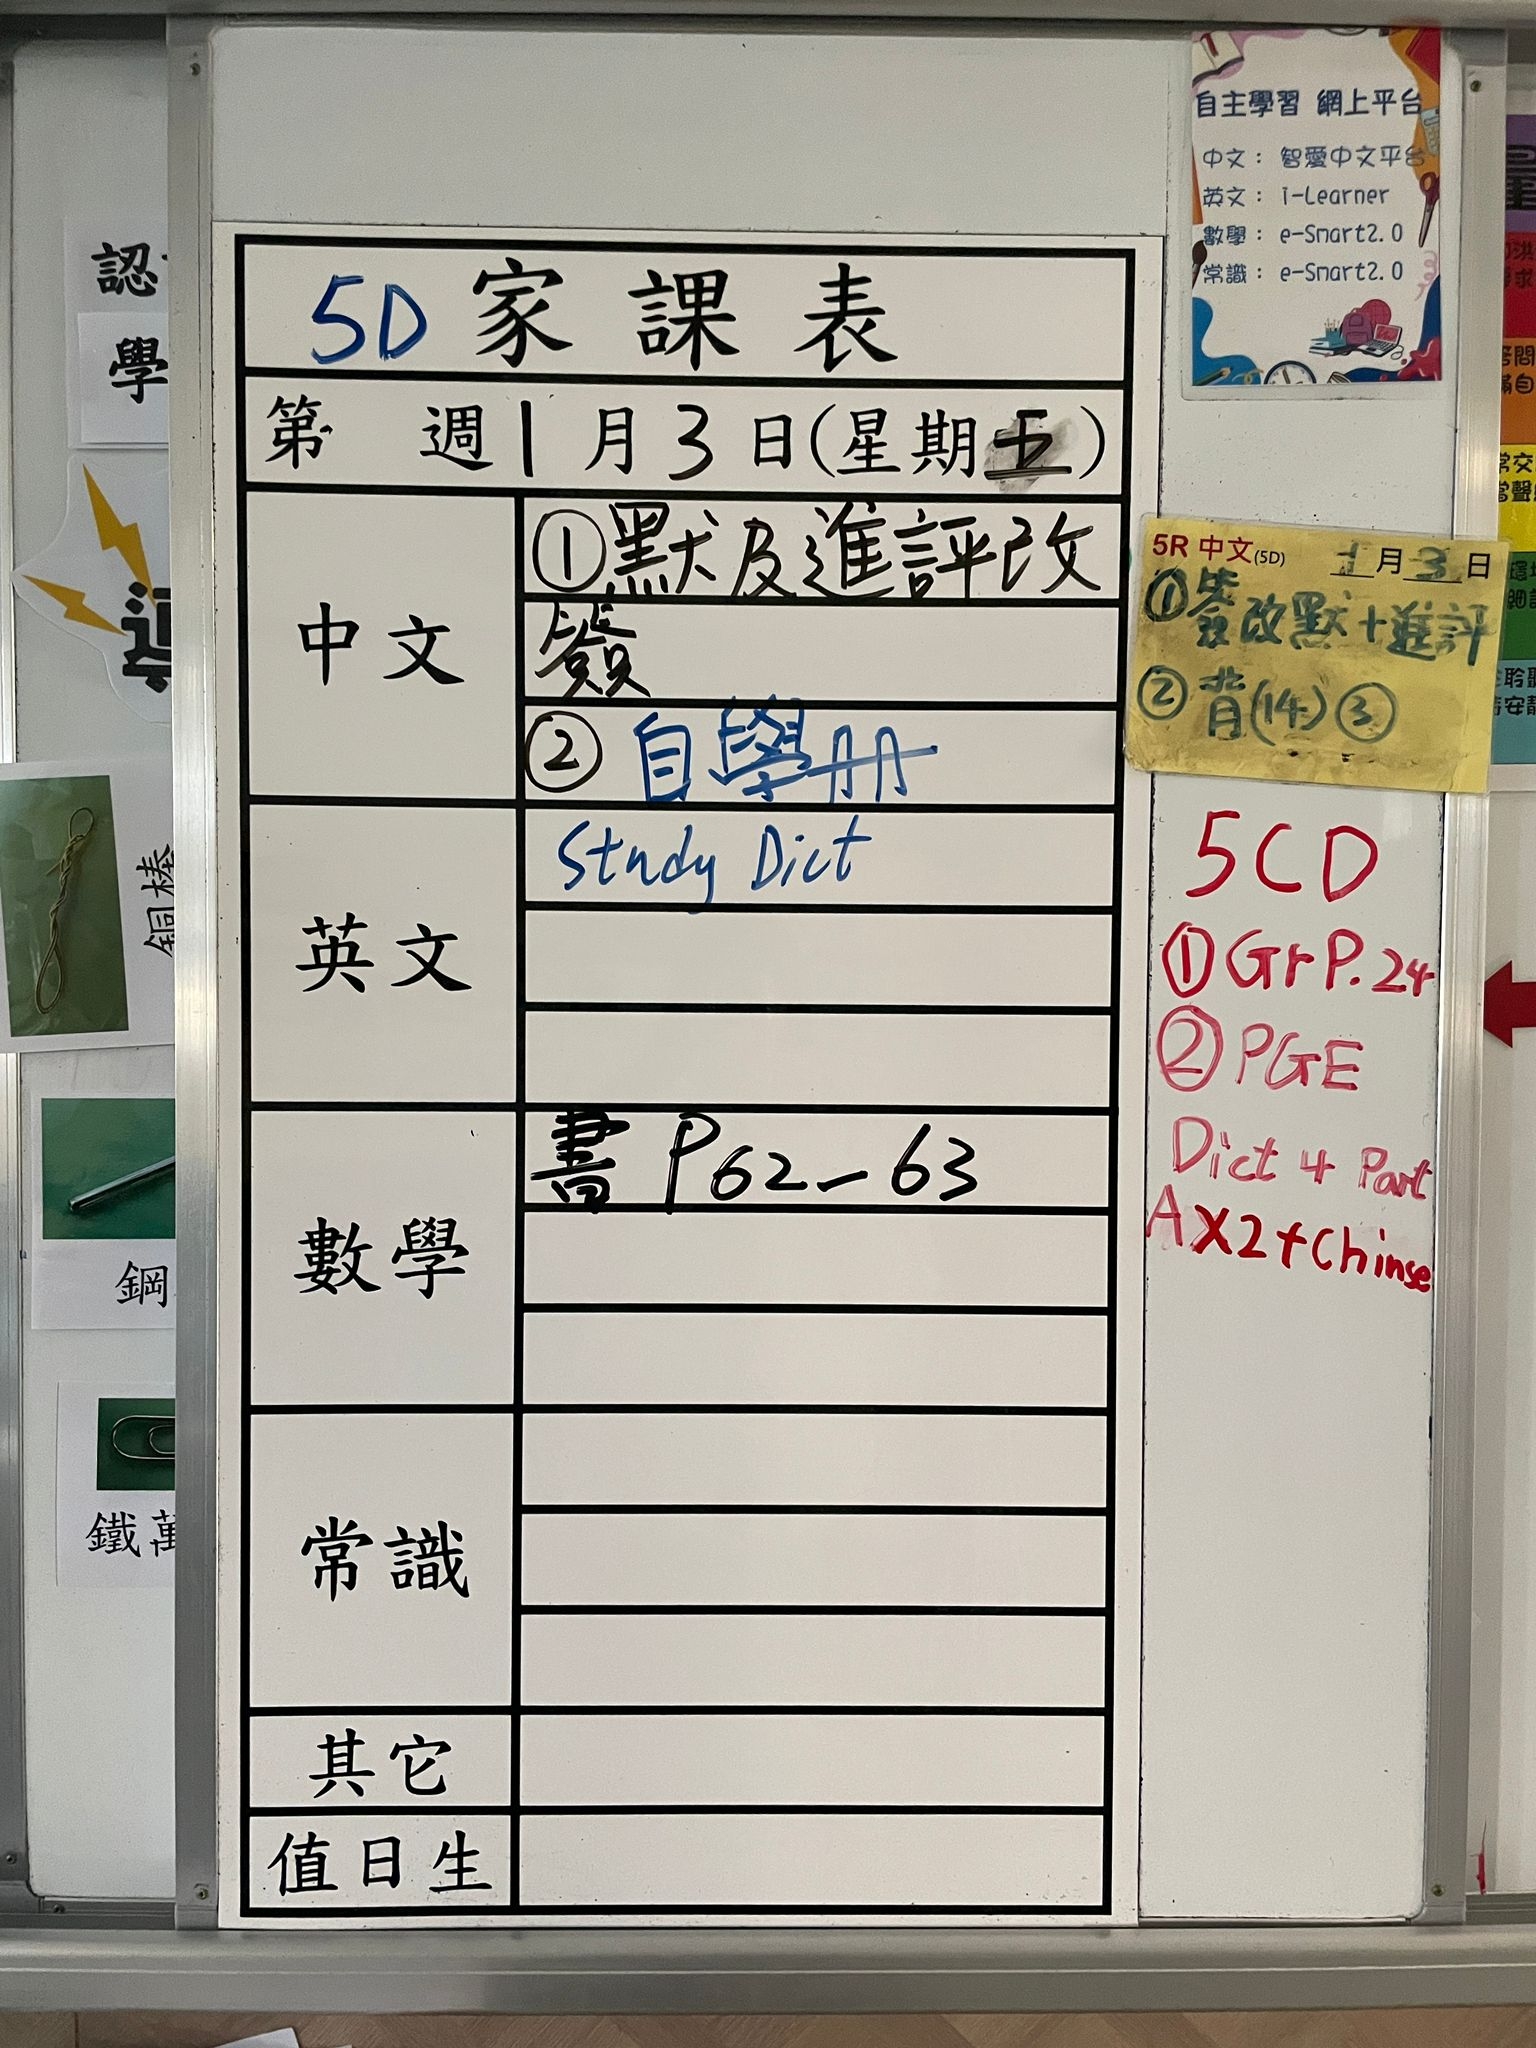 自主學習 網上平台
中文： 智愛中文平台
英文： i-Learner
數學： e-Smart2.0
常識： e-Smart2.0
5D 家課表
第 週 1 月 3 日(星期五)
中文
①默及進評改
簽
② 自學冊
英文
Study Dict
數學
書 P62-63
常識
其它
值日生
5R 中文(5D) 1月3日
①簽改默+進評
②背(14)③
5CD
①Gr P.24
②PGE
Dict 4 Part
A X2+Chinse
認
學
銅棒
鋼
鐵萬